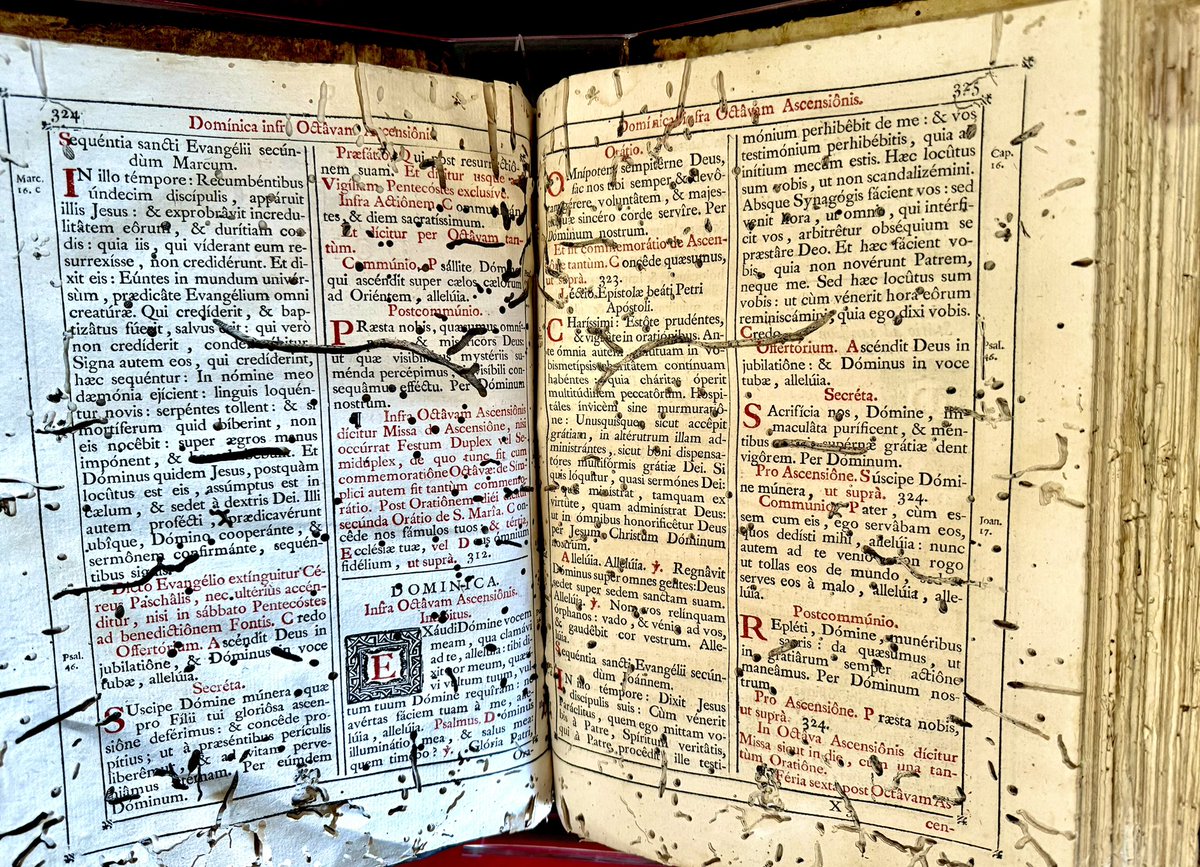 324
Domínica infra Octâvam Ascensiônis.
Marc.
16. c
Sequéntia sancti Evangélii secún-
dùm Marcum.
IN illo témpore: Recumbéntibus
úndecim discípulis, appáruit
illis Jesus: & exprobrâvit incredu-
litâtem eôrum, & durítiam cor-
dis: quia iis, qui víderant eum re-
surrexisse, non credidérunt. Et di-
xit eis: Eúntes in mundum univér-
sùm, prædicâte Evangélium omni
creatúræ. Qui credíderit, & bap-
tizâtus fúerit, salvus erit: qui verò
non credíderit,
Signa autem eos, qui credíderint,
hæc sequéntur: In nómine meo
dæmónia ejícient: linguis loquén-
tur novis: serpéntes tollent: & si
mortíferum quid bíberint, non
eis nocêbit: super ægros manus
impónent, & Et
Dóminus quidem Jesus, postquàm
locûtus est eis, assúmptus est in
cælum, & sedet à dextris Dei. Illi
autem profécti prædicavérunt
ubîque, Dómino cooperánte, &
sermônem confirmánte, sequén-
tibus signis.
Dicto Evangélio extínguitur Cé-
reus Paschâlis, nec ultérius accén-
ditur, nisi in sábbato Pentecóstes
ad benedictiônem Fontis. Credo
Psal.
46.
Offertórium. Ascéndit Deus in
jubilatiône, & Dóminus in voce
tubæ, allelúia.
Secréta.
SUscipe Dómine múnera, quæ
pro Fílii tui gloriôsa ascen-
siône deférimus: & concêde pro-
pítius; ut à præséntibus perículis
liberêmur, & ad vitam perve-
niâmus ætérnam. Per eúmdem
Dóminum.
Præfátio, Qui post resurrectiô-
nem suam. Et dícitur usque
Vigíliam Pentecóstes exclusíve.
Infra Actiônem. Communicán-
tes, & diem sacratíssimum.
Et dícitur per Octâvam tan-
tùm.
Commúnio. Psállite Dómino
qui ascéndit super cælos cælôrum
ad Oriéntem, allelúia.
Postcommúnio.
PRæsta nobis, quæsumus omní-
potens & miséricors Deus:
ut quæ visibílibus mystériis su-
ménda percépimus, invisíbili con-
sequâmur efféctu. Per Dóminum
nostrum.
¶ Infra Octâvam Ascensiônis
dícitur Missa de Ascensiône, nisi
occúrrat Festum Duplex vel Se-
midúplex, de quo tunc fit cum
commemoratiône Octâvæ: de Sim-
plici autem fit tantùm commemo-
rátio. Post Oratiônem diéi dícitur
secúnda Orátio de S. María. Con-
cêde nos fámulos tuos & tértia,
Ecclésiæ tuæ, vel Deus ómnium
fidélium, ut suprà. 312.
DOMINICA.
Infra Octâvam Ascensiônis.
Intróitus.
EXáudi Dómine vocem
meam, qua clamávi
ad te, allelúia: tibi di-
xit cor meum, quæsí-
vi vultum tuum, vul-
tum tuum Dómine requíram: ne
avértas fáciem tuam à me, alle-
lúia, allelúia. Psalmus. Dóminus
illuminátio mea, & salus mea:
quem timébo? ℣. Glória Patri.
Orá-
325
Domínica infra Octâvam Ascensiônis.
Orátio.
OMnípotens sempitérne Deus,
fac nos tibi semper & devô-
tam gérere, voluntâtem, & majes-
tâti tuæ sincéro corde servîre. Per
Dóminum nostrum.
Et fit commemorátio de Ascen-
siône tantùm. Concêde quæsumus,
ut suprà. 323.
Léctio Epístolæ beáti Petri
Apóstoli.
CHaríssimi: Estôte prudéntes,
& vigilâte in oratiónibus. An-
te ómnia autem, mútuam in vo-
bismetípsis charitâtem contínuam
habéntes: quia cháritas óperit
multitúdinem peccatôrum. Hospi-
táles ínvicem sine murmuratiô-
ne: Unusquísque sicut accêpit
grátiam, in altérutrum illam ad-
ministrántes, sicut boni dispensa-
tóres multifórmis grátiæ Dei. Si
quis lóquitur, quasi sermónes Dei:
si quis minístrat, tamquam ex
virtúte, quam adminístrat Deus:
ut in ómnibus honorificétur Deus
per Jesum Christum Dóminum
nostrum.
Allelúia. Allelúia. ℣. Regnâvit
Dóminus super omnes gentes: Deus
sedet super sedem sanctam suam.
Allelúia. ℣. Non vos relínquam
órphanos: vado, & vénio ad vos,
& gaudêbit cor vestrum. Alle-
lúia.
Sequéntia sancti Evangélii secún-
dùm Joánnem.
IN illo témpore: Dixit Jesus
discípulis suis: Cùm vénerit
Paráclitus, quem ego mittam vo-
bis à Patre, Spíritum veritâtis,
qui à Patre procédit, ille testi-
mónium perhibêbit de me: & vos
testimónium perhibébitis, quia ab
inítium mecum estis. Hæc locûtus
sum vobis, ut non scandalizémini.
Absque Synagógis fácient vos: sed
venit hora, ut omnis, qui intérfi-
cit vos, arbitrêtur obséquium se
præstâre Deo. Et hæc fácient vo-
bis, quia non novérunt Patrem,
neque me. Sed hæc locûtus sum
vobis: ut cùm vénerit hora eôrum
reminiscámini, quia ego dixi vobis.
Credo.
Offertórium. Ascéndit Deus in
jubilatiône: & Dóminus in voce
tubæ, allelúia.
Secréta.
SAcrifícia nos, Dómine, im-
maculâta puríficent, & mén-
tibus nostris supérnæ grátiæ dent
vigôrem. Per Dóminum.
Pro Ascensiône. Súscipe Dómi-
ne múnera, ut suprà. 324.
Commúnio. Pater, cùm es-
sem cum eis, ego servâbam eos,
quos dedísti mihi, allelúia: nunc
autem ad te vénio: non rogo
ut tollas eos de mundo, sed ut
serves eos à malo, allelúia, alle-
luía.
Postcommúnio.
REpléti, Dómine, munéribus
sacris: da quæsumus, ut
in gratiârum semper actiône
maneâmus. Per Dóminum nos-
trum.
Pro Ascensiône. Præsta nobis,
ut suprà. 324.
In Octâva Ascensiônis dícitur
Missa sicut in die, cum una tan-
tùm Oratiône.
Féria sexta post Octâvam As-
X
cen-
Cap.
16.
Psal.
46.
Joan.
17.